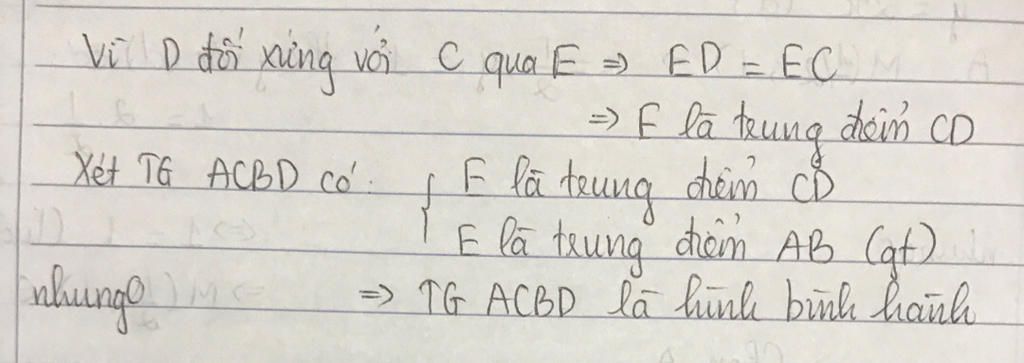 Vì D đối xứng với C qua E ⇒ ED = EC
⇒ E là trung điểm CD
Xét TG ACBD có: { E là trung điểm CD
E là trung điểm AB (gt)
nhung ⇒ TG ACBD là hình bình hành